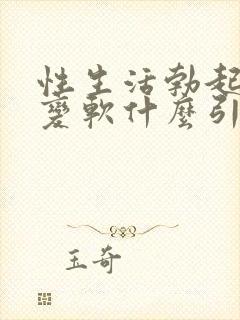 性生活勃起
變軟什麼引
玉奇